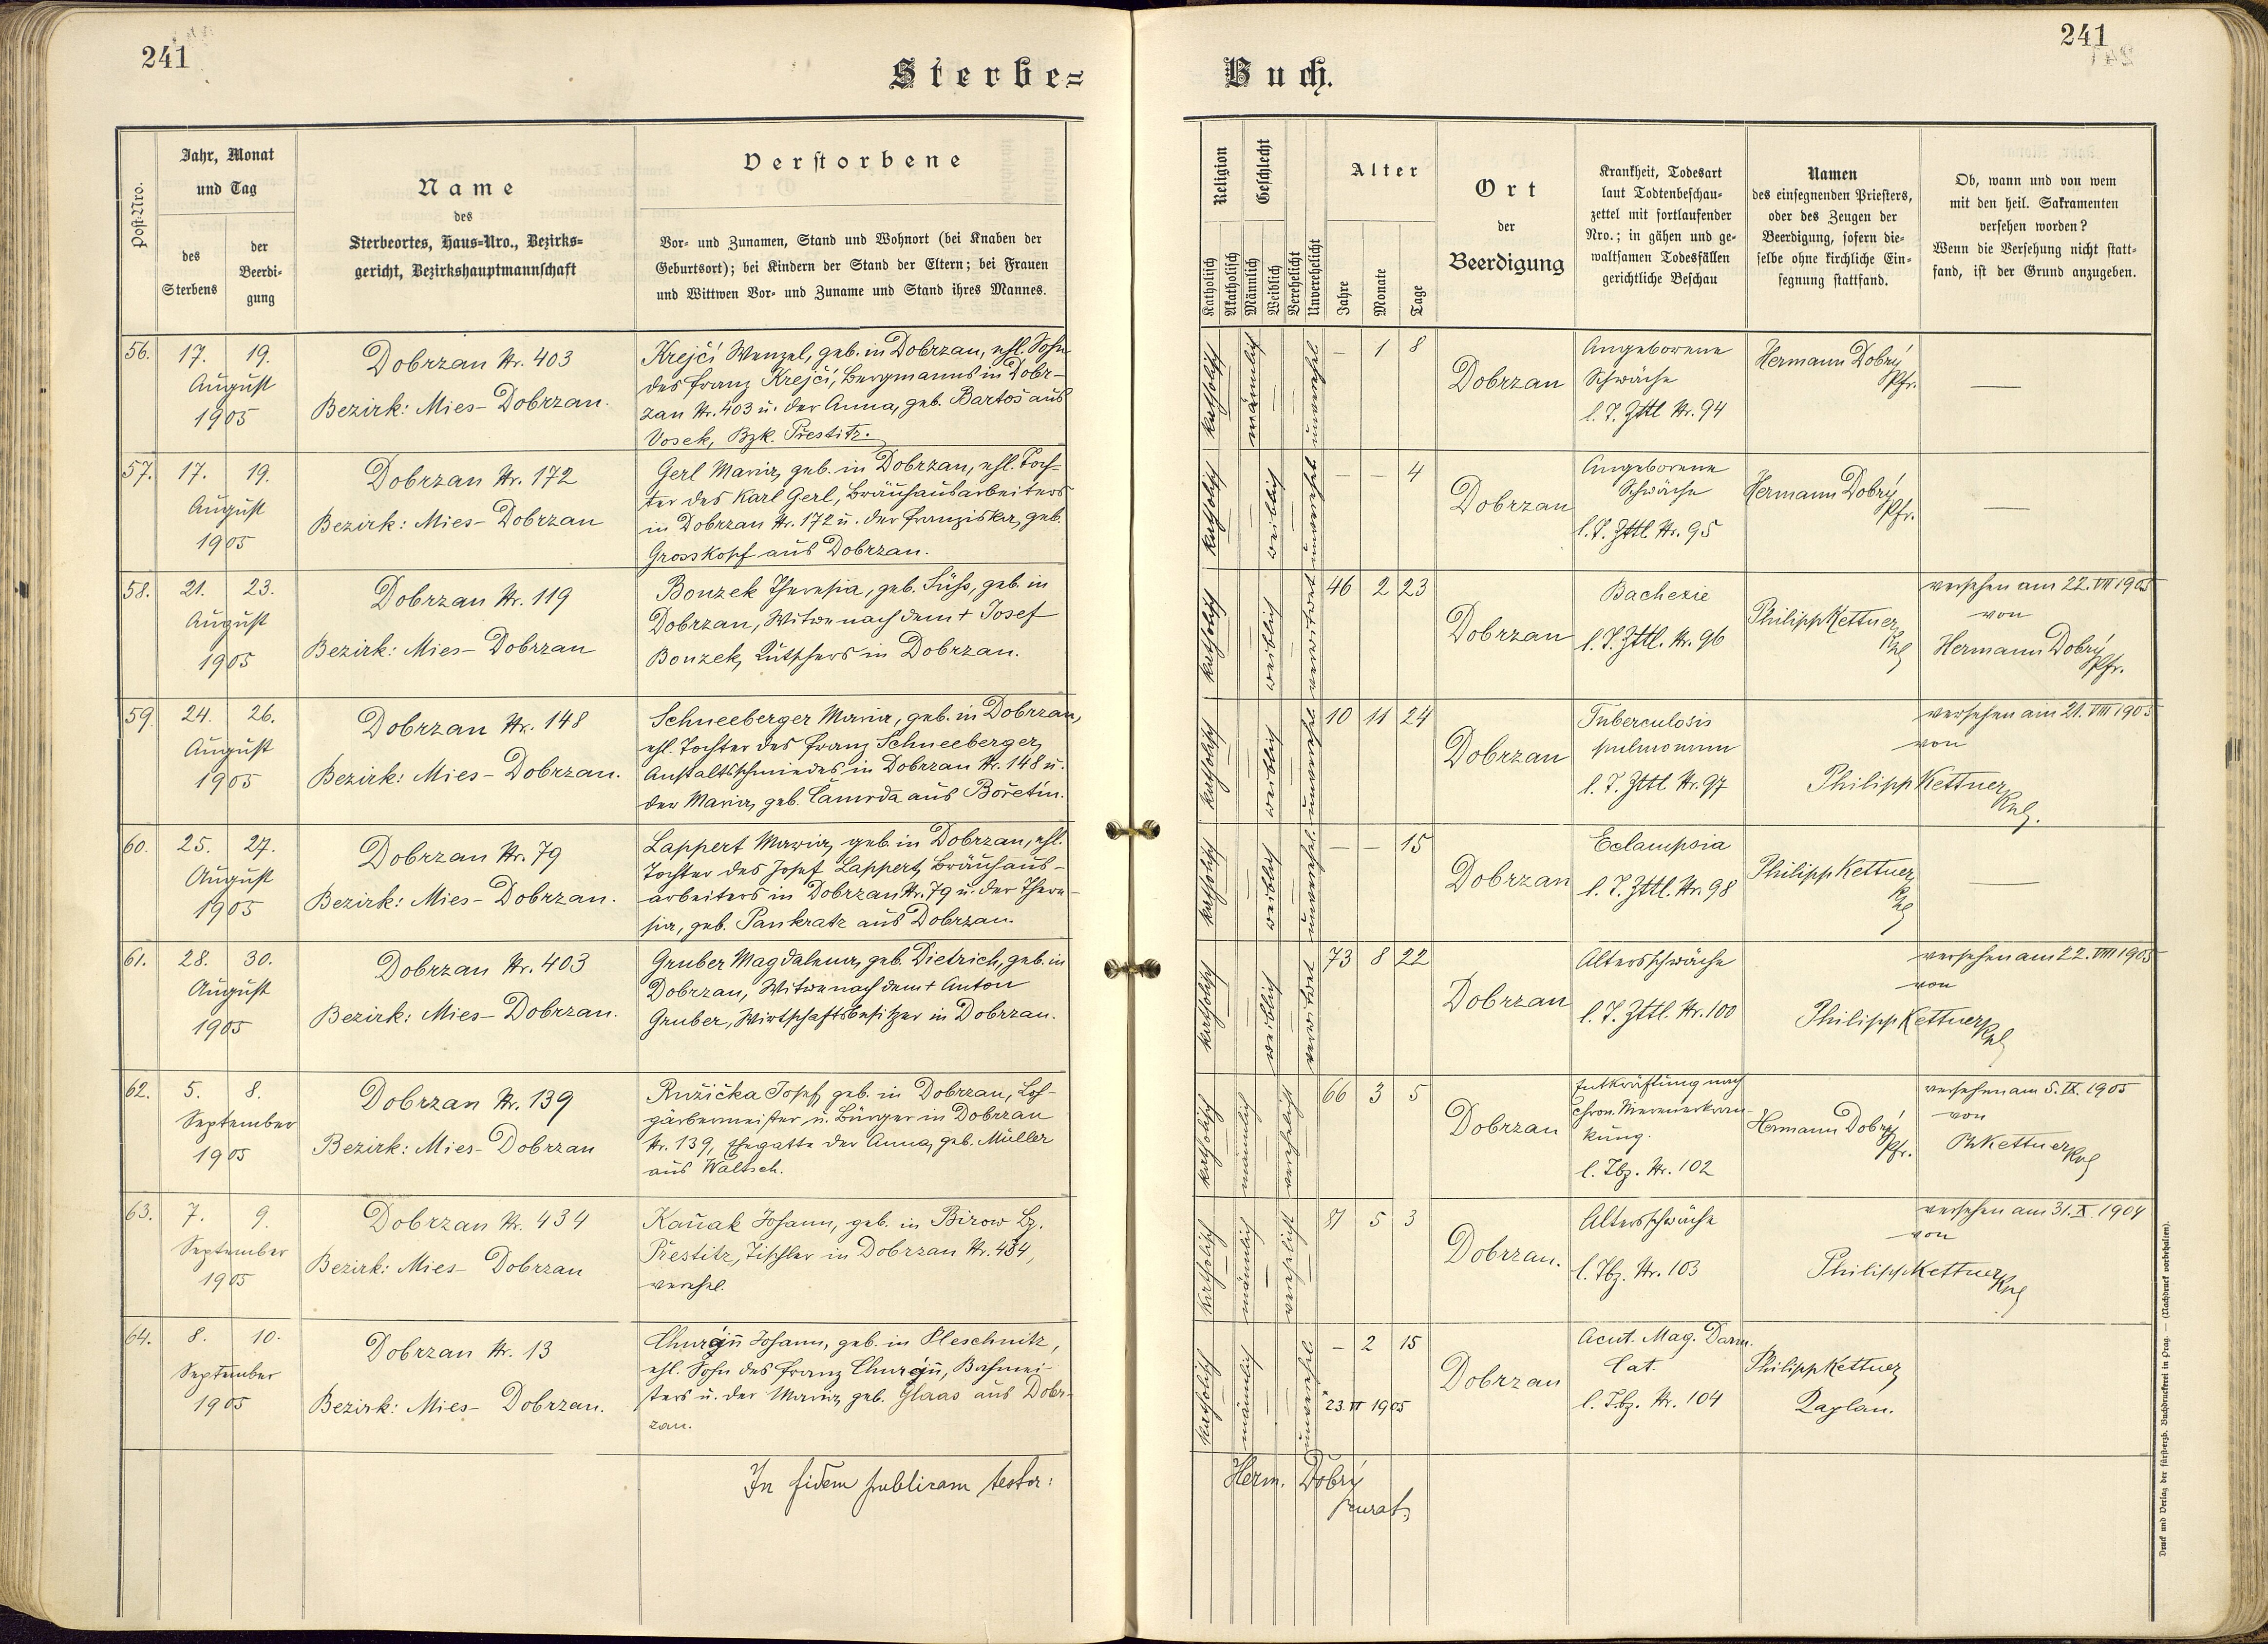 241
Sterbe=
Jahr, Monat
und Tag
Post-Nro.
des
Sterbens
der
Beerdi-
gung
Name
des
Sterbeortes, Haus=Nro., Bezirks=
gericht, Bezirkshauptmannschaft
Verstorbene
Vor- und Zunamen, Stand und Wohnort (bei Knaben der
Geburtsort); bei Kindern der Stand der Eltern; bei Frauen
und Wittwen Vor- und Zuname und Stand ihres Mannes.
56. 17. 19.
August
1905
Dobrzan Nr. 403
Bezirk: Mies- Dobrzan.
Krejčí Wenzel, geb. in Dobrzan, ehl. Sohn
des Franz Krejčí, Bergmanns in Dobr-
zan Nr. 403 u. der Anna, geb. Bartoš aus
Vosek, Bzk. Přestitz.
57. 17. 19.
August
1905
Dobrzan Nr. 172
Bezirk: Mies- Dobrzan
Gerl Maria, geb. in Dobrzan, ehl. Toch-
ter des Karl Gerl, Bräuhausarbeiters
in Dobrzan Nr. 172 u. der Franziska, geb.
Grosskopf aus Dobrzan.
58. 21. 23.
August
1905
Dobrzan Nr. 119
Bezirk: Mies- Dobrzan
Bouzek Theresia, geb. Süß, geb. in
Dobrzan, Witwe nach dem + Josef
Bouzek, Kutschers in Dobrzan.
59. 24. 26.
August
1905
Dobrzan Nr. 148
Bezirk: Mies- Dobrzan.
Schneeberger Maria, geb. in Dobrzan,
ehl. Tochter des Franz Schneeberger,
Anstaltsschmiedes in Dobrzan Nr. 148 u.
der Maria, geb. Čamrda aus Bořetín.
60. 25. 27.
August
1905
Dobrzan Nr. 79
Bezirk: Mies- Dobrzan.
Lappert Maria, geb. in Dobrzan, ehl.
Tochter des Josef Lappert, Bräuhaus-
arbeiters in Dobrzan Nr. 79 u. der There-
sia, geb. Pankratz aus Dobrzan.
61. 28. 30.
August
1905
Dobrzan Nr. 403
Bezirk: Mies- Dobrzan.
Gruber Magdalena, geb. Dietrich, geb. in
Dobrzan, Witwe nach dem + Anton
Gruber, Wirtschaftsbesitzer in Dobrzan.
62. 5. 8.
September
1905
Dobrzan Nr. 139
Bezirk: Mies- Dobrzan
Ružička Josef, geb. in Dobrzan, Loh-
gärbermeister u. Bürger in Dobrzan
Nr. 139, Ehegatte der Anna, geb. Müller
aus Waltsch.
63. 7. 9.
September
1905
Dobrzan Nr. 434
Bezirk: Mies- Dobrzan
Kaňak Johann, geb. in Birow Bz.
Přestitz, Tischler in Dobrzan Nr. 434,
verehel.
64. 8. 10.
September
1905
Dobrzan Nr. 13
Bezirk: Mies- Dobrzan.
Johann, geb. in Pleschnitz,
ehl. Sohn des Franz Bahmei-
sters u. der Maria, geb. Glaas aus Dobr-
zan.
In fidem publicam testor:
241
Buch.
Religion
Katholisch
Akatholisch
Geschlecht
Männlich
Weiblich
Verehelicht
Unverehelicht
Alter
Jahre
Monate
Tage
Ort
der
Beerdigung
Krankheit, Todesart
laut Todtenbeschau-
zettel mit fortlaufender
Nro.; in gähen und ge-
waltsamen Todesfällen
gerichtliche Beschau
Namen
des einsegnenden Priesters,
oder des Zeugen der
Beerdigung, sofern die-
selbe ohne kirchliche Ein-
segnung stattfand.
Ob, wann und von wem
mit den heil. Sakramenten
versehen worden?
Wenn die Versehung nicht statt-
fand, ist der Grund anzugeben.
katholisch männlich unverehel.
– 1 8
Dobrzan
Angeborene
Schwäche
l. T. Zttl Nr. 94
Hermann Dobrý
Pfr.
—
katholisch weiblich unverehel
– – 4
Dobrzan
Angeborene
Schwäche
l. T. Zttl. Nr. 95
Hermann Dobrý
Pfr.
—
katholisch weiblich verwitwet
46 2 23
Dobrzan
Bachexie
l. T. Zttl. Nr. 96
Philipp Kettner
Kpl
versehen am 22. VIII 1905
von
Hermann Dobrý
Pfr.
katholisch weiblich unverehel
10 11 24
Dobrzan
Tuberculosis
pulmonum
l. T. Zttl. Nr. 97
versehen am 21. VIII 1905
von
Philipp Kettner
Kpl.
katholisch weiblich unverehel.
– – 15
Dobrzan
Eclampsia
l. T. Zttl. Nr. 98
Philipp Kettner
Kpl
—
katholisch weiblich verwitwet
73 8 22
Dobrzan
Altersschwäche
l. T. Zttl. Nr. 100
versehen am 22. VIII 1905
von
Philipp Kettner Kpl
katholisch männlich verehelicht
66 3 5
Dobrzan
Entkräftung nach
chron. Nierenerkran-
kung.
l. Tbz. Nr. 102
Hermann Dobrý
Pfr.
versehen am 5. IX. 1905
von
Ph Kettner Kpl
katholisch männlich verehelicht
81 5 3
Dobrzan.
Altersschwäche
l. Tbz. Nr. 103
versehen am 31. X. 1904
von
Philipp Kettner Kpl
katholisch männlich unverehel
– 2 15
23 VI 1905
Dobrzan
Acut. Mag. Darm.
Cat.
l. Tbz. Nr. 104
Philipp Kettner
Kaplan.
Herm. Dobrý
Druck und Verlag der fürsterzb. Buchdruckerei in Prag. — (Nachdruck vorbehalten).